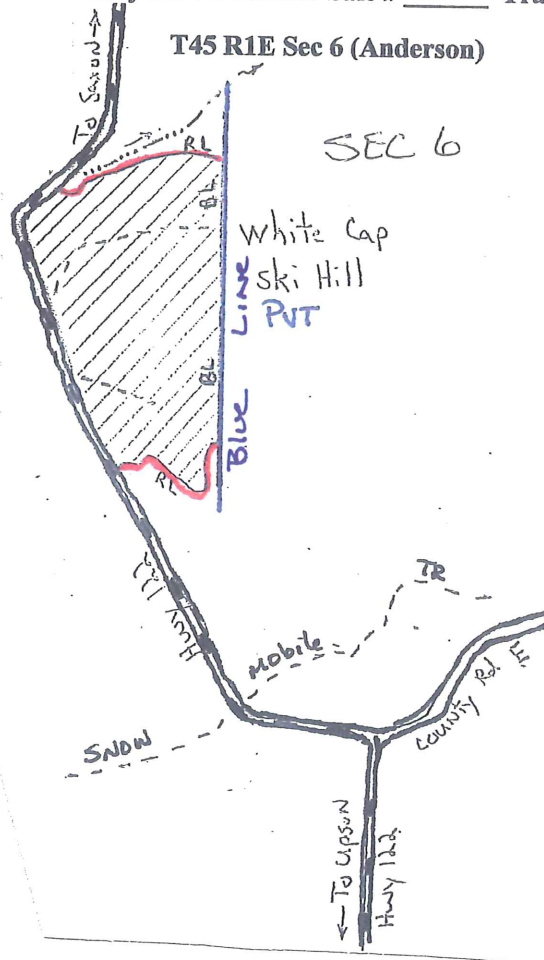 T45 R1E Sec 6 (Anderson)
To Saxon →
RL
SEC 6
BL
White Cap
Ski Hill
PVT
BL
Blue LINE
RL
Hwy 122
SNOW Mobile TR
County Rd E
← To Upson
Hwy 122